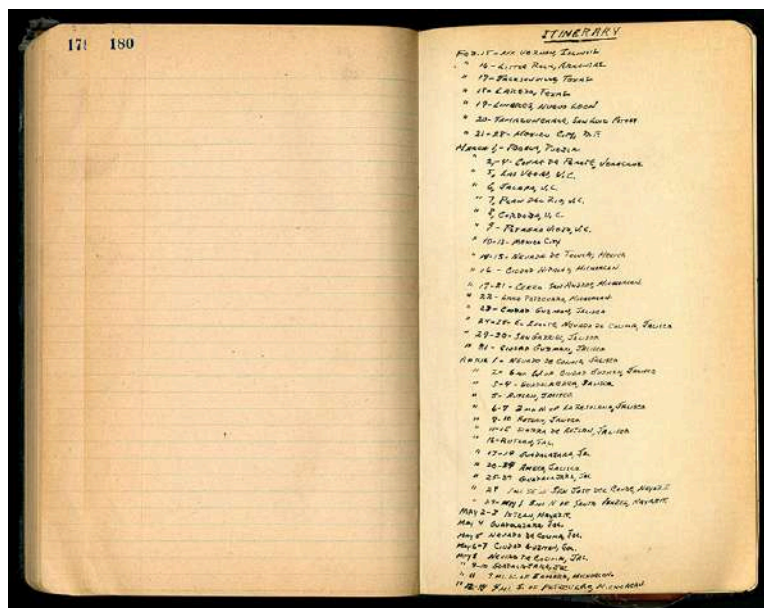 179 180
ITINERARY
Feb. 15 - Mt. Vernon, Illinois
" 16 - Little Rock, Arkansas
" 17 - Jacksonville, Texas
" 18 - Laredo, Texas
" 19 - Linares, Nuevo Leon
" 20 - Tamazunchale, San Luis Potosi
" 21-28 - Mexico City, D.F.
March 1 - Puebla, Puebla
" 2-4 - Cofre de Perote, Veracruz
" 5, Las Vegas, V.C.
" 6, Jalapa, V.C.
" 7, Plan del Rio, V.C.
" 8, Cordoba, V.C.
" 9 - Potrero Viejo, V.C.
" 10-13 - Mexico City
" 14-15 - Nevado de Toluca, Mexico
" 16 - Ciudad Hidalgo, Michoacan
" 17-21 - Cerro San Andres, Michoacan
" 22 - Lake Patzcuaro, Michoacan
" 23 - Ciudad Guzman, Jalisco
" 24-28 - Nevado de Colima, Jalisco
" 29-30 - San Gabriel, Jalisco
" 31 - Ciudad Guzman, Jalisco
April 1 - Nevado de Colima, Jalisco
" 2 - 6 mi of Ciudad Guzman, Jalisco
" 3-4 - Guadalajara, Jalisco
" 5 - Autlan, Jalisco
" 6-7 2 mi N of La Resolana, Jalisco
" Autlan, Jalisco
" Sierra de Autlan, Jalisco
" 16 - Autlan, Jal.
" 17-19 Guadalajara, Jal
" Ameca, Jalisco
" Guadalajara, Jal
" 28 1 mi SE of San Jose del Conde, Nayarit
" 29 - May 1 8 mi N of Santa Nayarit
May 2-3 Ixtlan, Nayarit
May 4 Guadalajara, Jal.
May 5 Nevado de Colima, Jal.
May 6-7 Ciudad Guzman, Jal.
May 8 Nevado de Colima, Jal.
" 9-10 Guadalajara, Jal
" 11 mi. of Zamora, Michoacan
" mi S. of Patzcuaro, Michoacan